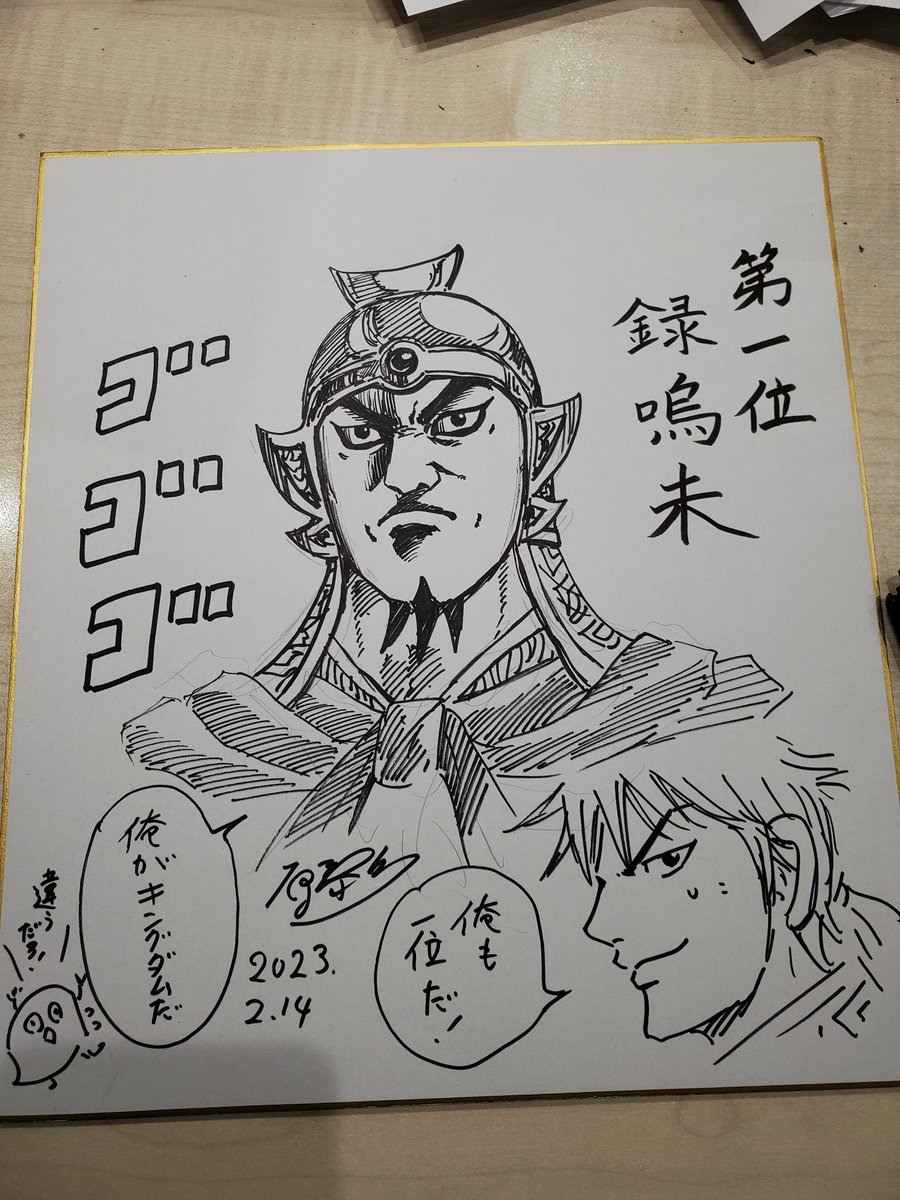 第一位
録嗚未
ゴゴゴ
俺も
一位だ!
俺がキングダムだ
違う
だろ!
2023.
2.14